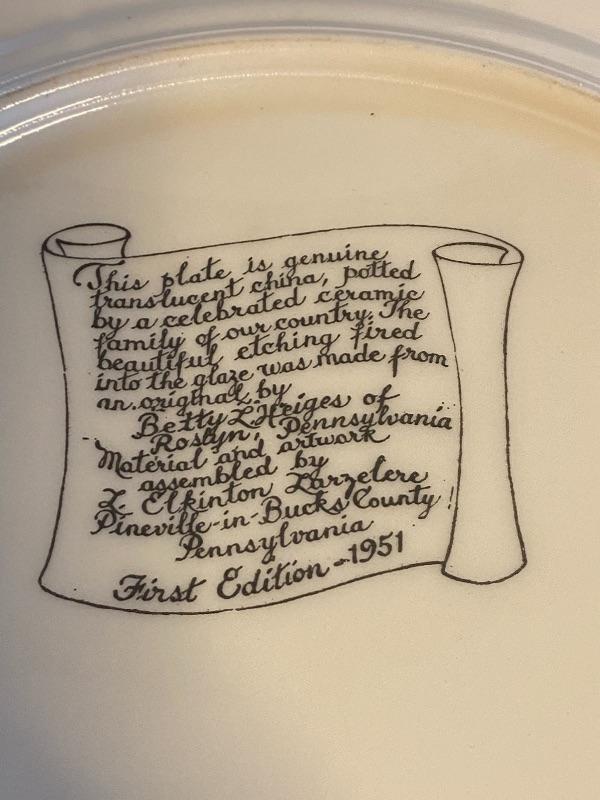 This plate is genuine
translucent china, potted
by a celebrated ceramic
family of our country. The
beautiful etching fired
into the glaze was made from
an original by
Betty L Heiges of
Roslyn, Pennsylvania
Material and artwork
assembled by
L. Elkinton Larzelere
Pineville-in-Bucks County
Pennsylvania
First Edition - 1951